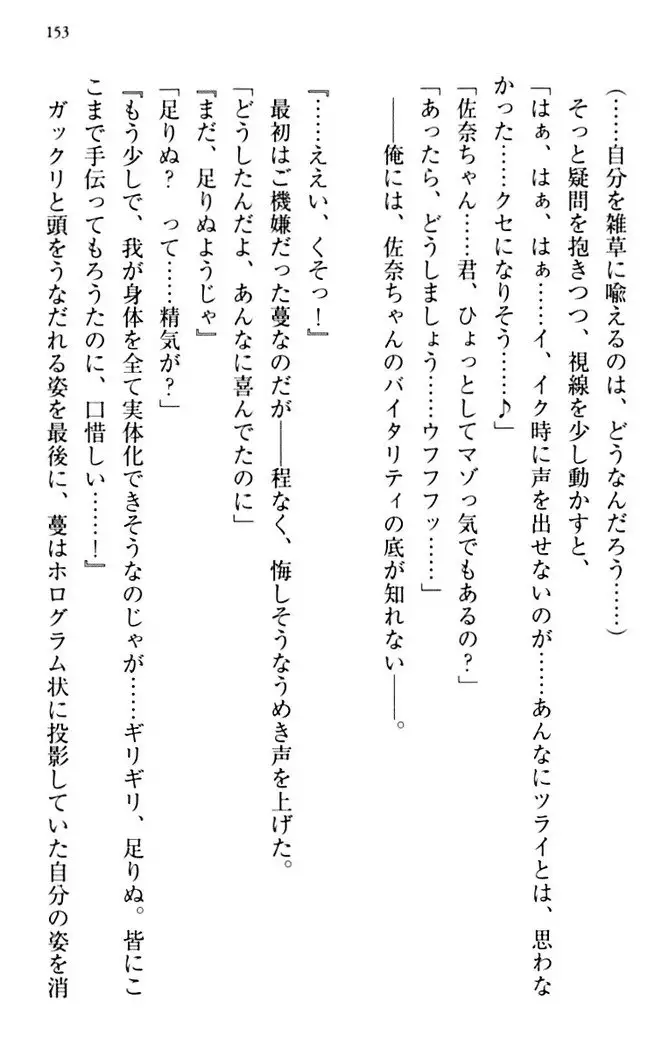 153
(……自分を雑草に喩えるのは、どうなんだろう……)
そっと疑問を抱きつつ、視線を少し動かすと、
「はぁ、はぁ、はぁ……イ、イク時に声を出せないのが……あんなにツライとは、思わな
かった……クセになりそう……♪」
「佐奈ちゃん……君、ひょっとしてマゾっ気でもあるの?」
「あったら、どうしましょう……ウフフフッ……」
――俺には、佐奈ちゃんのバイタリティの底が知れない――。
『……ええい、くそっ!』
最初はご機嫌だった蔓なのだが――程なく、悔しそうなうめき声を上げた。
「どうしたんだよ、あんなに喜んでたのに」
『まだ、足りぬようじゃ』
「足りぬ? って……精気が?」
『もう少しで、我が身体を全て実体化できそうなのじゃが……ギリギリ、足りぬ。皆にこ
こまで手伝ってもろうたのに、口惜しい……!』
ガックリと頭をうなだれる姿を最後に、蔓はホログラム状に投影していた自分の姿を消